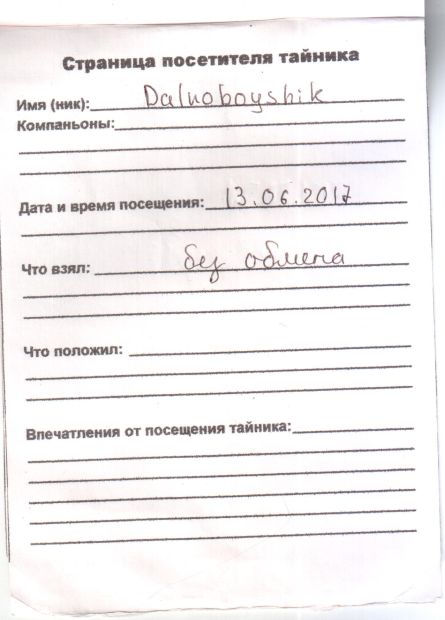 Страница посетителя тайника
Имя (ник): Dalnoboyshik
Компаньоны:
Дата и время посещения: 13.06.2017
Что взял: без обмена
Что положил:
Впечатления от посещения тайника: